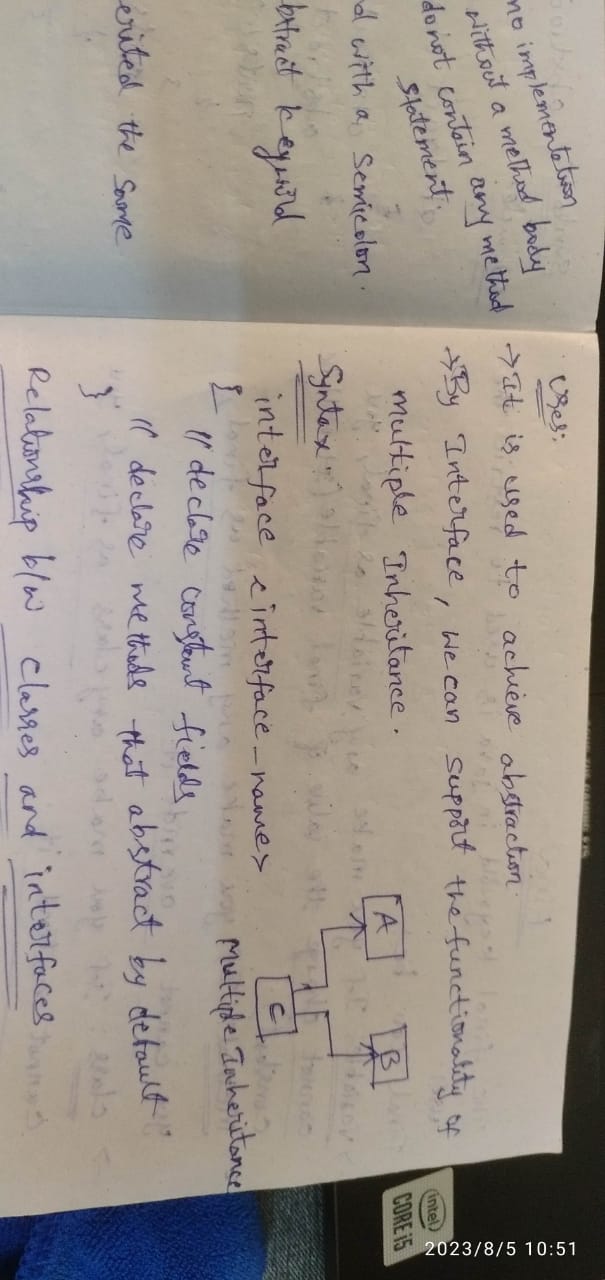 no implementation
without a method body
do not contain any method
statement.
d with a semicolon.
bstract keyword
erited the same
Uses:
→It is used to achieve abstraction.
→By Interface, we can support the functionality of
multiple Inheritance.
A
B
C
Multiple Inheritance
Syntax:
interface <interface_name>
{
// declare constant fields
// declare methods that abstract by default
}
Relationship b/w classes and interfaces
intel
CORE i5
2023/8/5 10:51